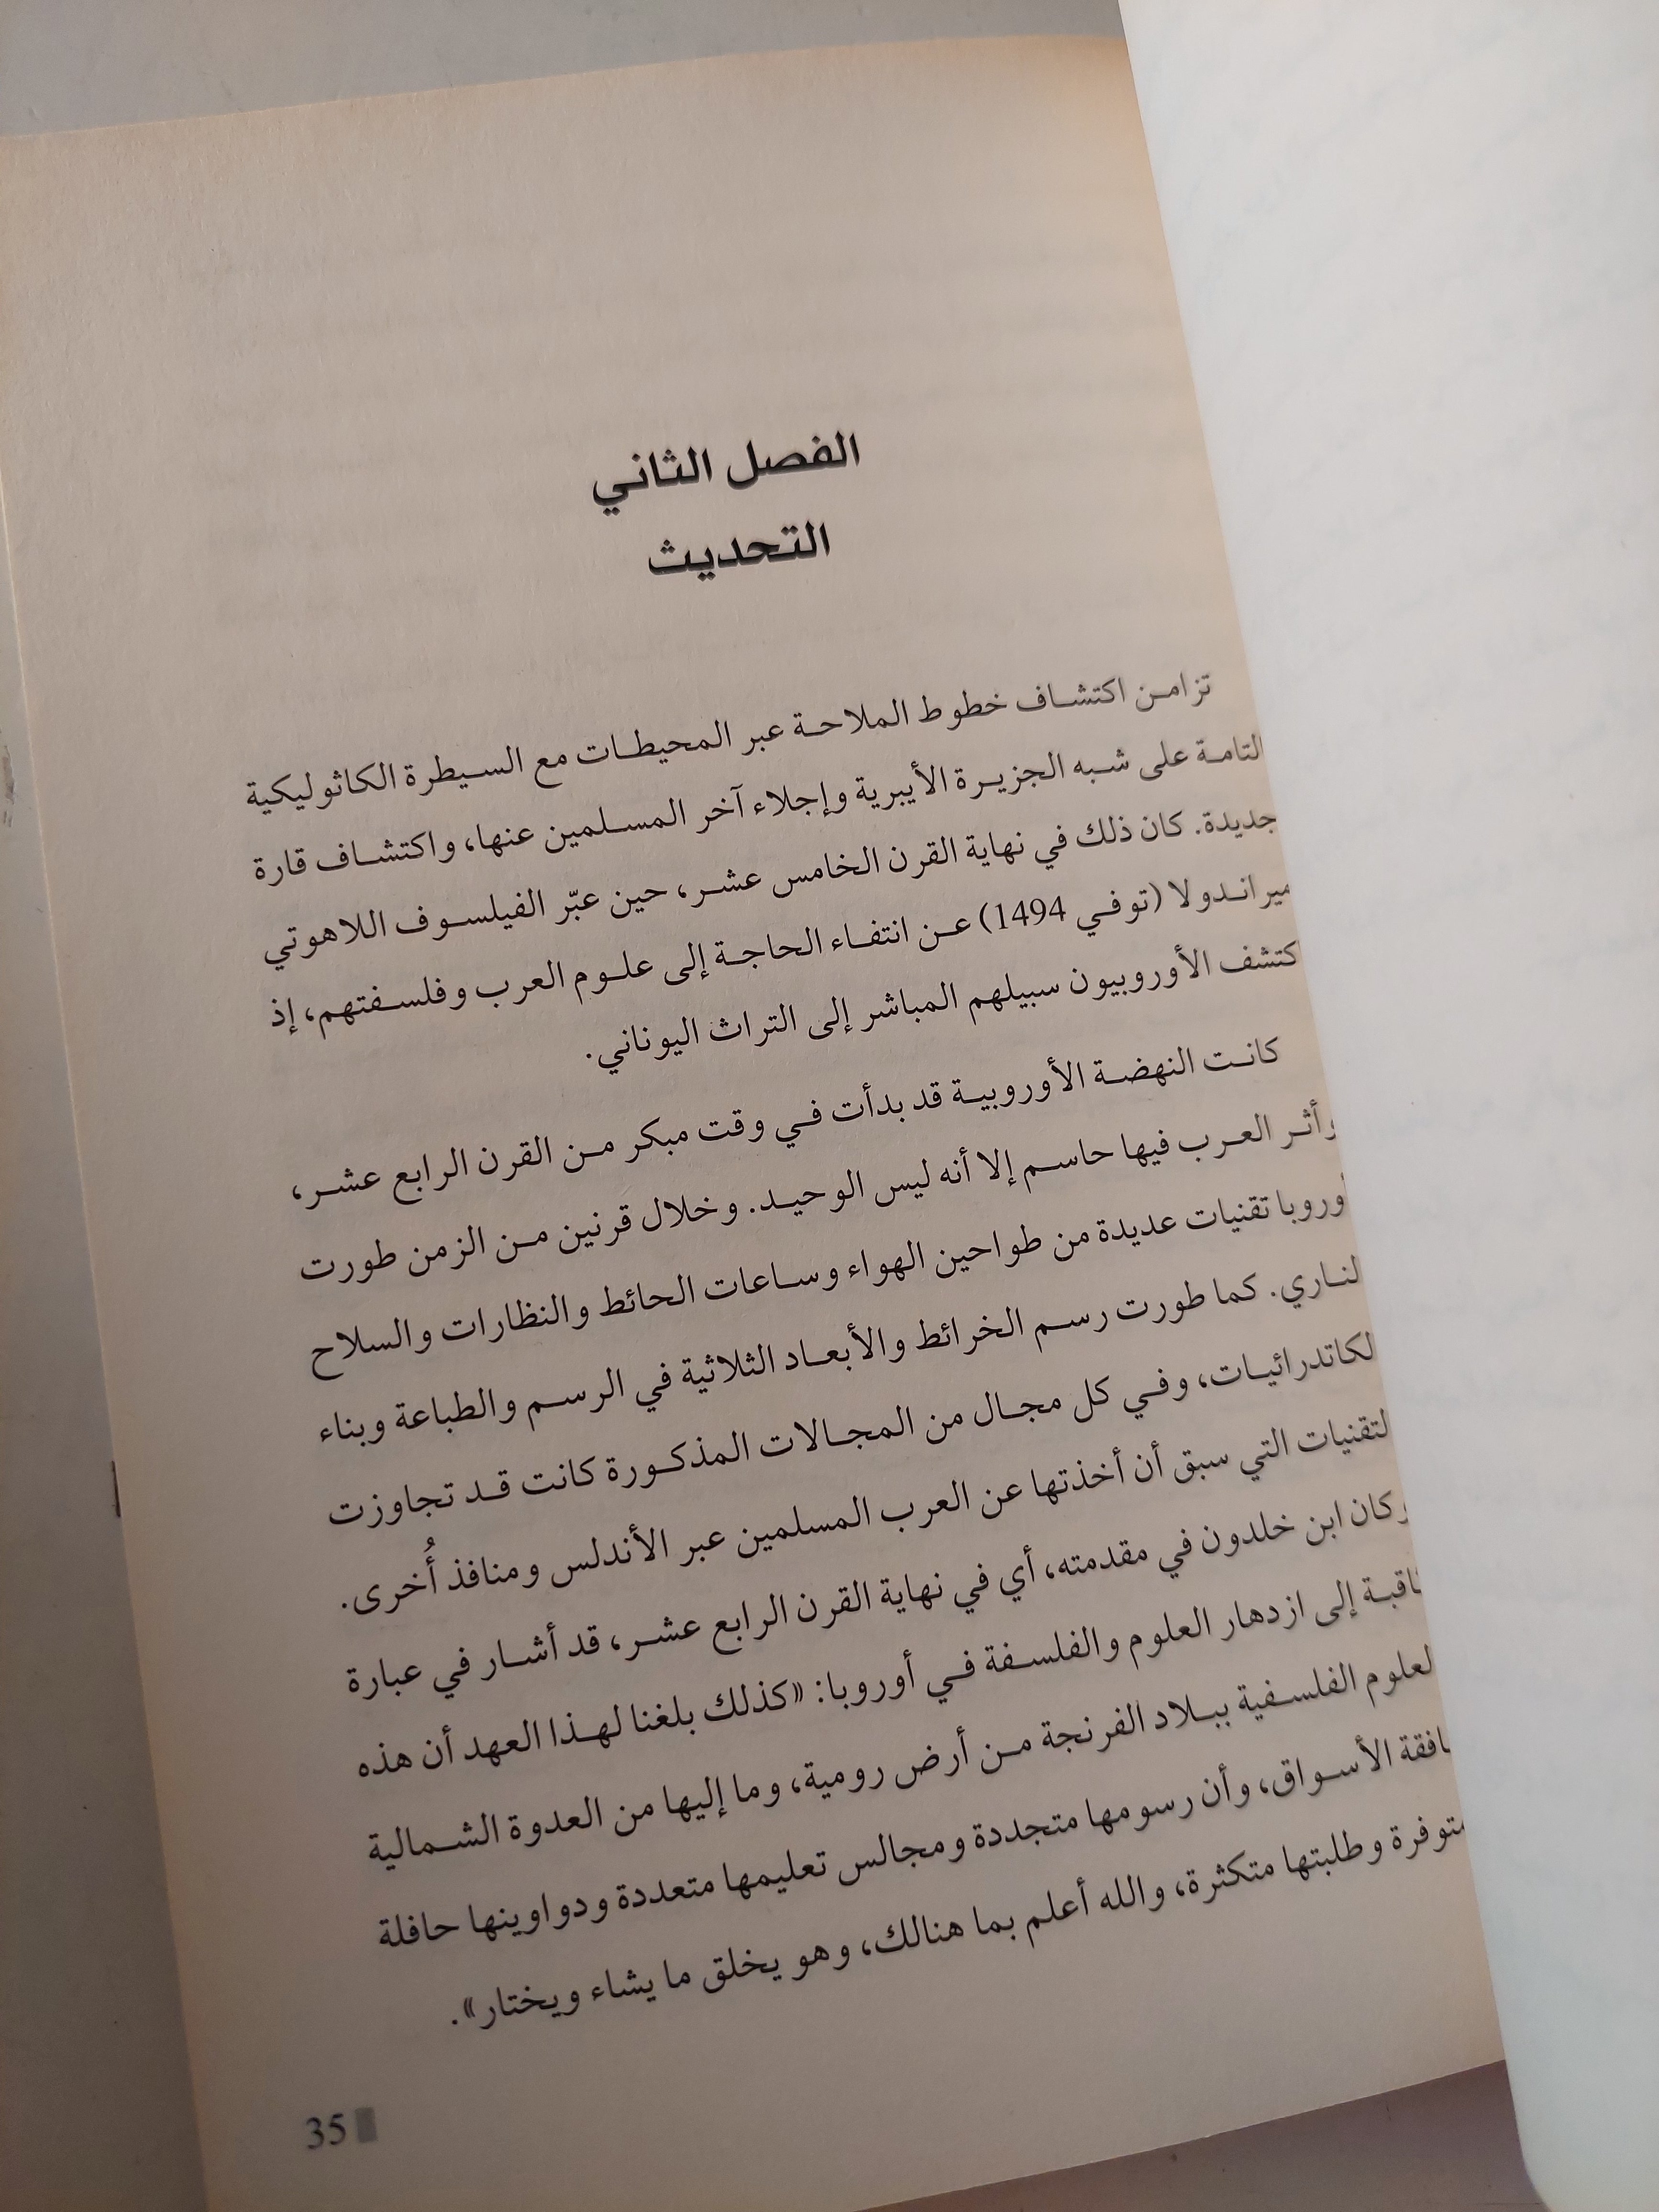 الفصل الثاني
التحديث
تزامن اكتشاف خطوط الملاحة عبر المحيطات مع السيطرة الكاثوليكية
التامة على شبه الجزيرة الأيبرية وإجلاء آخر المسلمين عنها، واكتشاف قارة
جديدة. كان ذلك في نهاية القرن الخامس عشر، حين عبّر الفيلسوف اللاهوتي
ميراندولا (توفي 1494) عن انتفاء الحاجة إلى علوم العرب وفلسفتهم، إذ
اكتشف الأوروبيون سبيلهم المباشر إلى التراث اليوناني.
كانت النهضة الأوروبية قد بدأت في وقت مبكر من القرن الرابع عشر،
وأثر العرب فيها حاسم إلا أنه ليس الوحيد. وخلال قرنين من الزمن طورت
أوروبا تقنيات عديدة من طواحين الهواء وساعات الحائط والنظارات والسلاح
الناري. كما طورت رسم الخرائط والأبعاد الثلاثية في الرسم والطباعة وبناء
الكاتدرائيات، وفي كل مجال من المجالات المذكورة كانت قد تجاوزت
التقنيات التي سبق أن أخذتها عن العرب المسلمين عبر الأندلس ومنافذ أُخرى.
وكان ابن خلدون في مقدمته، أي في نهاية القرن الرابع عشر، قد أشار في عبارة
ثاقبة إلى ازدهار العلوم والفلسفة في أوروبا: «كذلك بلغنا لهذا العهد أن هذه
العلوم الفلسفية ببلاد الفرنجة من أرض رومية، وما إليها من العدوة الشمالية
نافقة الأسواق، وأن رسومها متجددة ومجالس تعليمها متعددة ودواوينها حافلة
متوفرة وطلبتها متكثرة، والله أعلم بما هنالك، وهو يخلق ما يشاء ويختار».
35